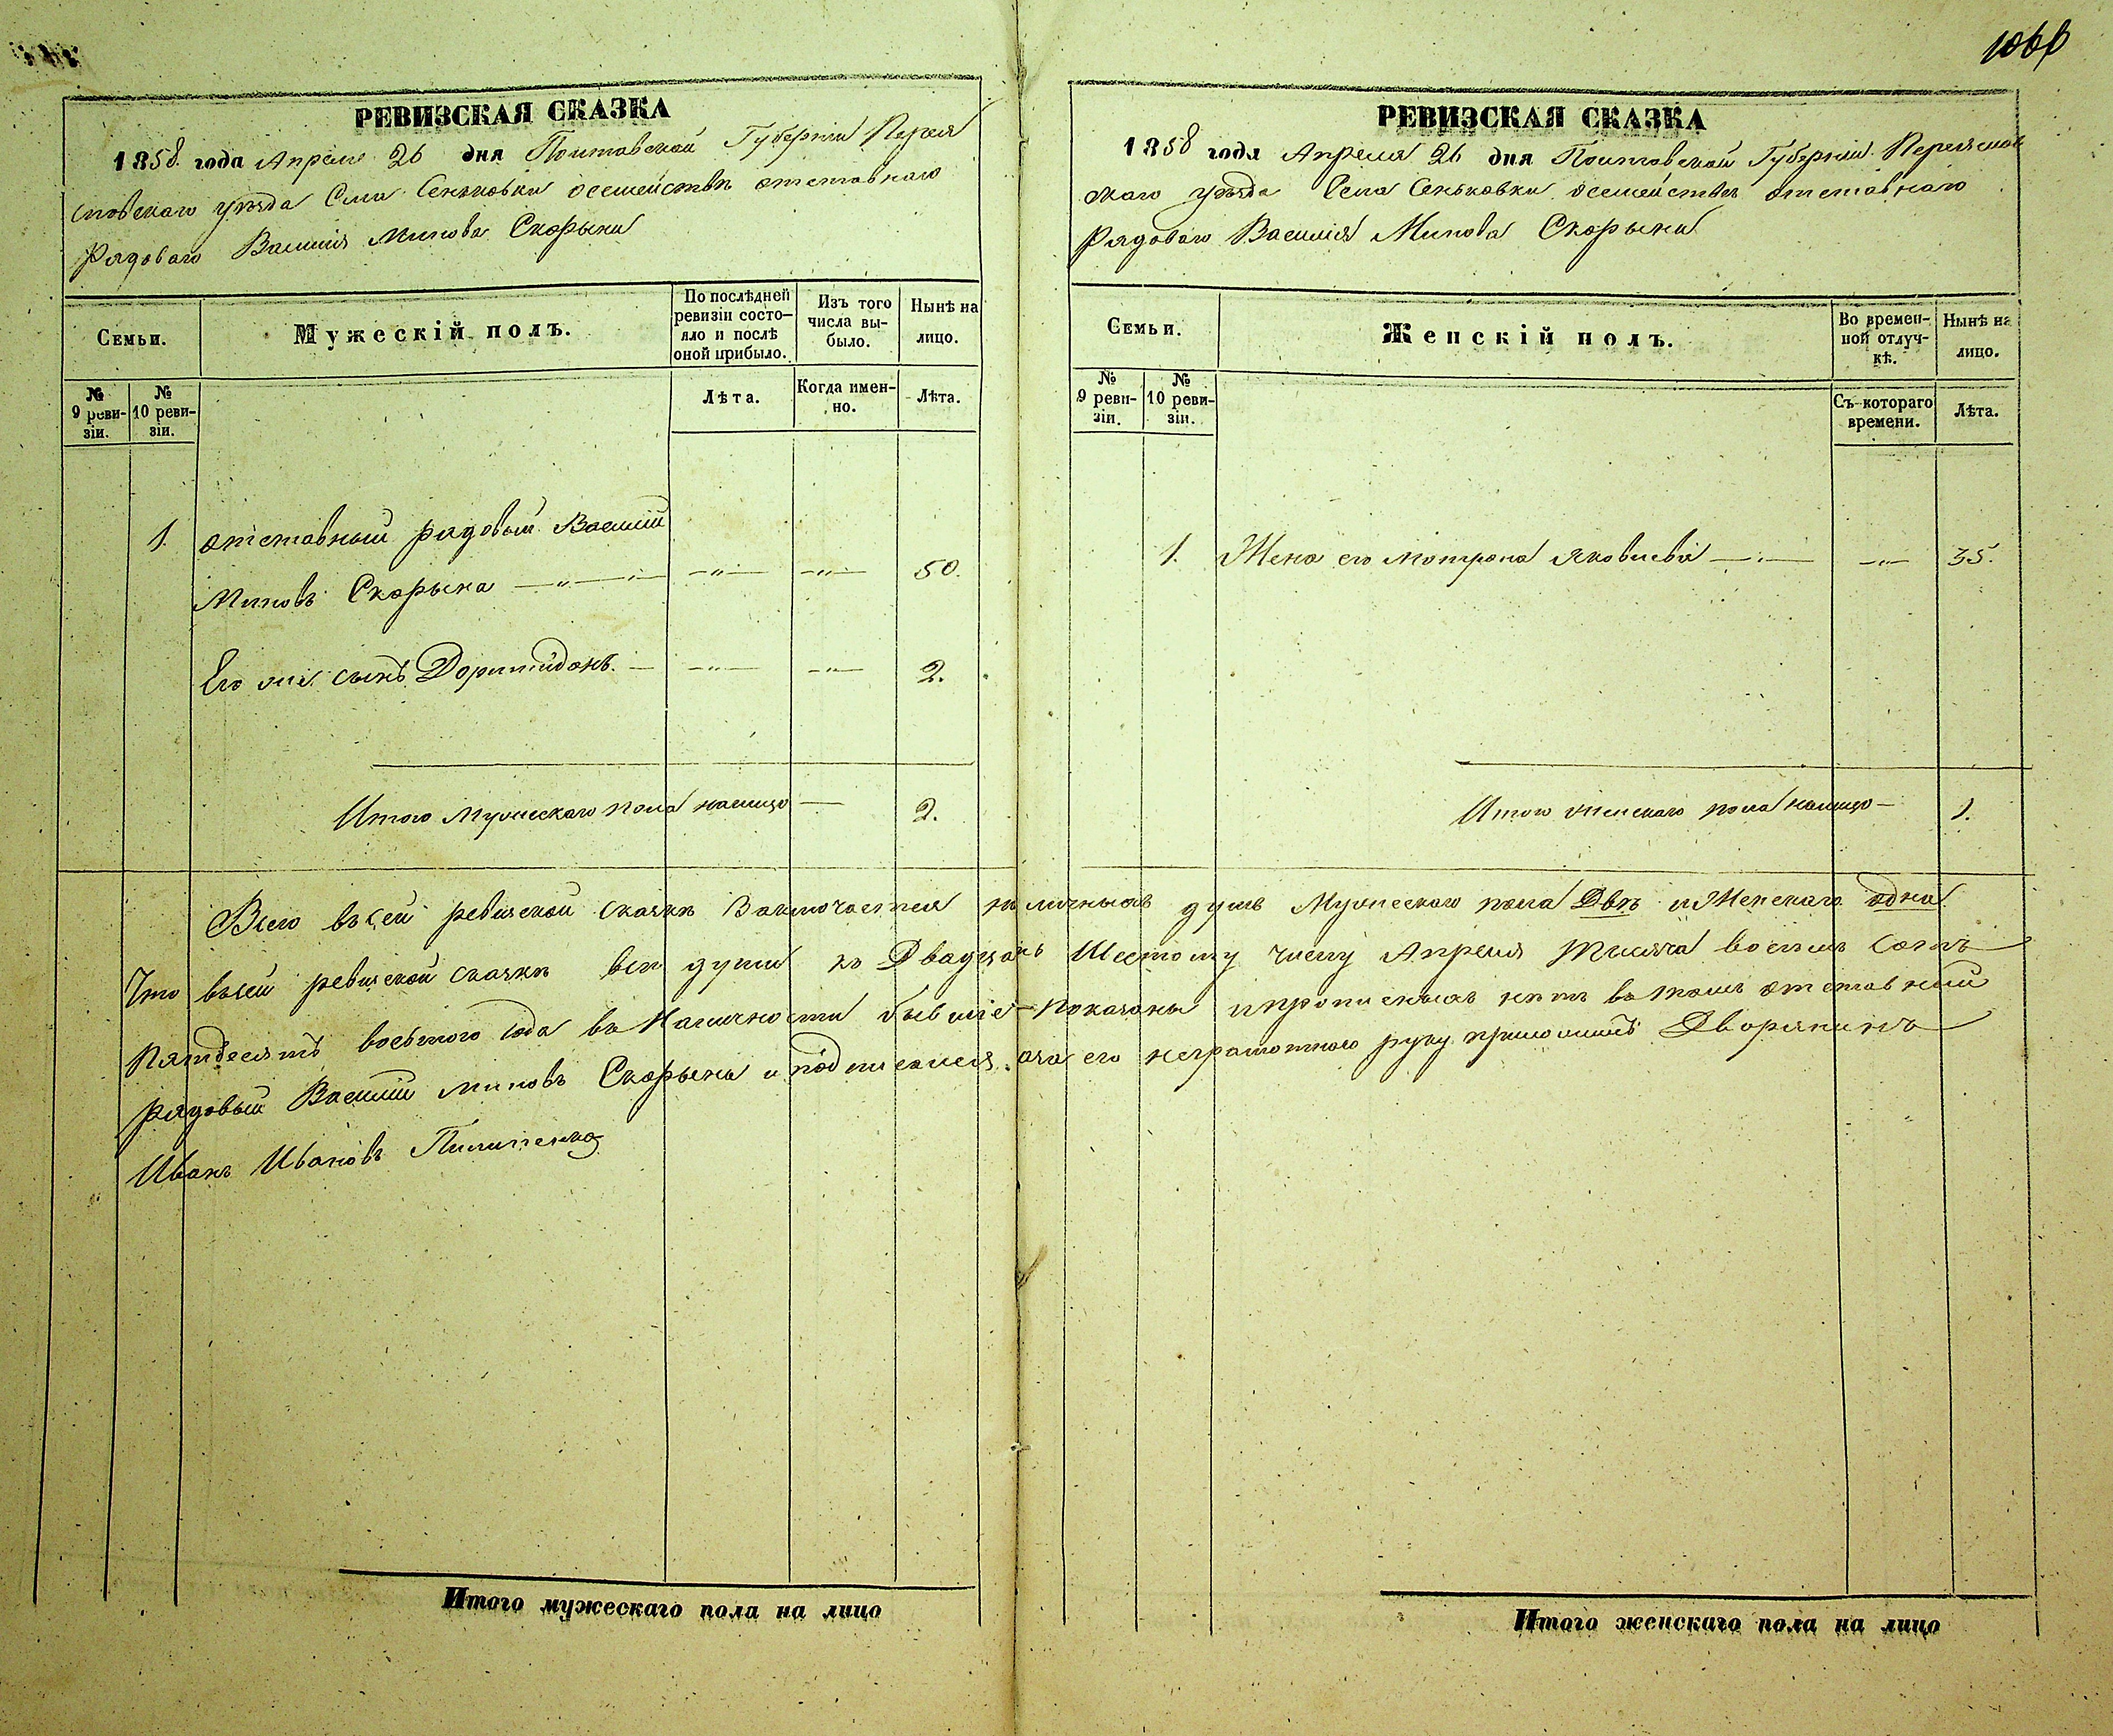 1066
РЕВИЗСКАЯ СКАЗКА
1858 года Апреля 26 дня Полтавской Губерніи Перея
словскаго уѣзда Села Сеньковки осемействѣ отставнаго
Рядоваго Василія Минова Скорыки
Семьи.
Мужескій полъ.
По послѣдней
ревизіи состо-
яло и послѣ
оной прибыло.
Изъ того
числа вы-
было.
Нынѣ на
лицо.
№
9 реви-
зіи.
№
10 реви-
зіи.
Лѣта.
Когда имен-
но.
Лѣта.
1. отставный рядовый Василій
Миновъ Скорыка 50.
Его же сынъ Доримидонъ. 2.
Итого Мужескаго пола налицо 2.
РЕВИЗСКАЯ СКАЗКА
1858 года Апреля 26 дня Полтавской Губерніи Переяслов
скаго уѣзда Села Сеньковки осемействѣ отставнаго
Рядоваго Василія Минова Скорыки
Семьи.
Женскій полъ.
Во времен-
ной отлуч-
кѣ.
Нынѣ на
лицо.
№
9 реви-
зіи.
№
10 реви-
зіи.
Съ котораго
времени.
Лѣта.
1. Жена его Мотрона Яковлева 35.
Итого женскаго пола налицо 1.
Всего въ сей ревизской сказкѣ Заключается наличныхъ душъ Мужескаго пола Двѣ и Женскаго одна
Что въ сей ревизской сказкѣ всѣ души къ Двадцать Шестому числу Апреля Тысяча восемь сотъ
Пятдесятъ восьмого года въ Наличности бывшіе показаны ипрописныхъ нѣтъ втомъ отставный
рядовый Василій Миновъ Скорыка и подписался. аза его неграмотного руку приложилъ Дворянинъ
Иванъ Ивановъ Пилипенко
Итого мужескаго пола на лицо
Итого женскаго пола на лицо